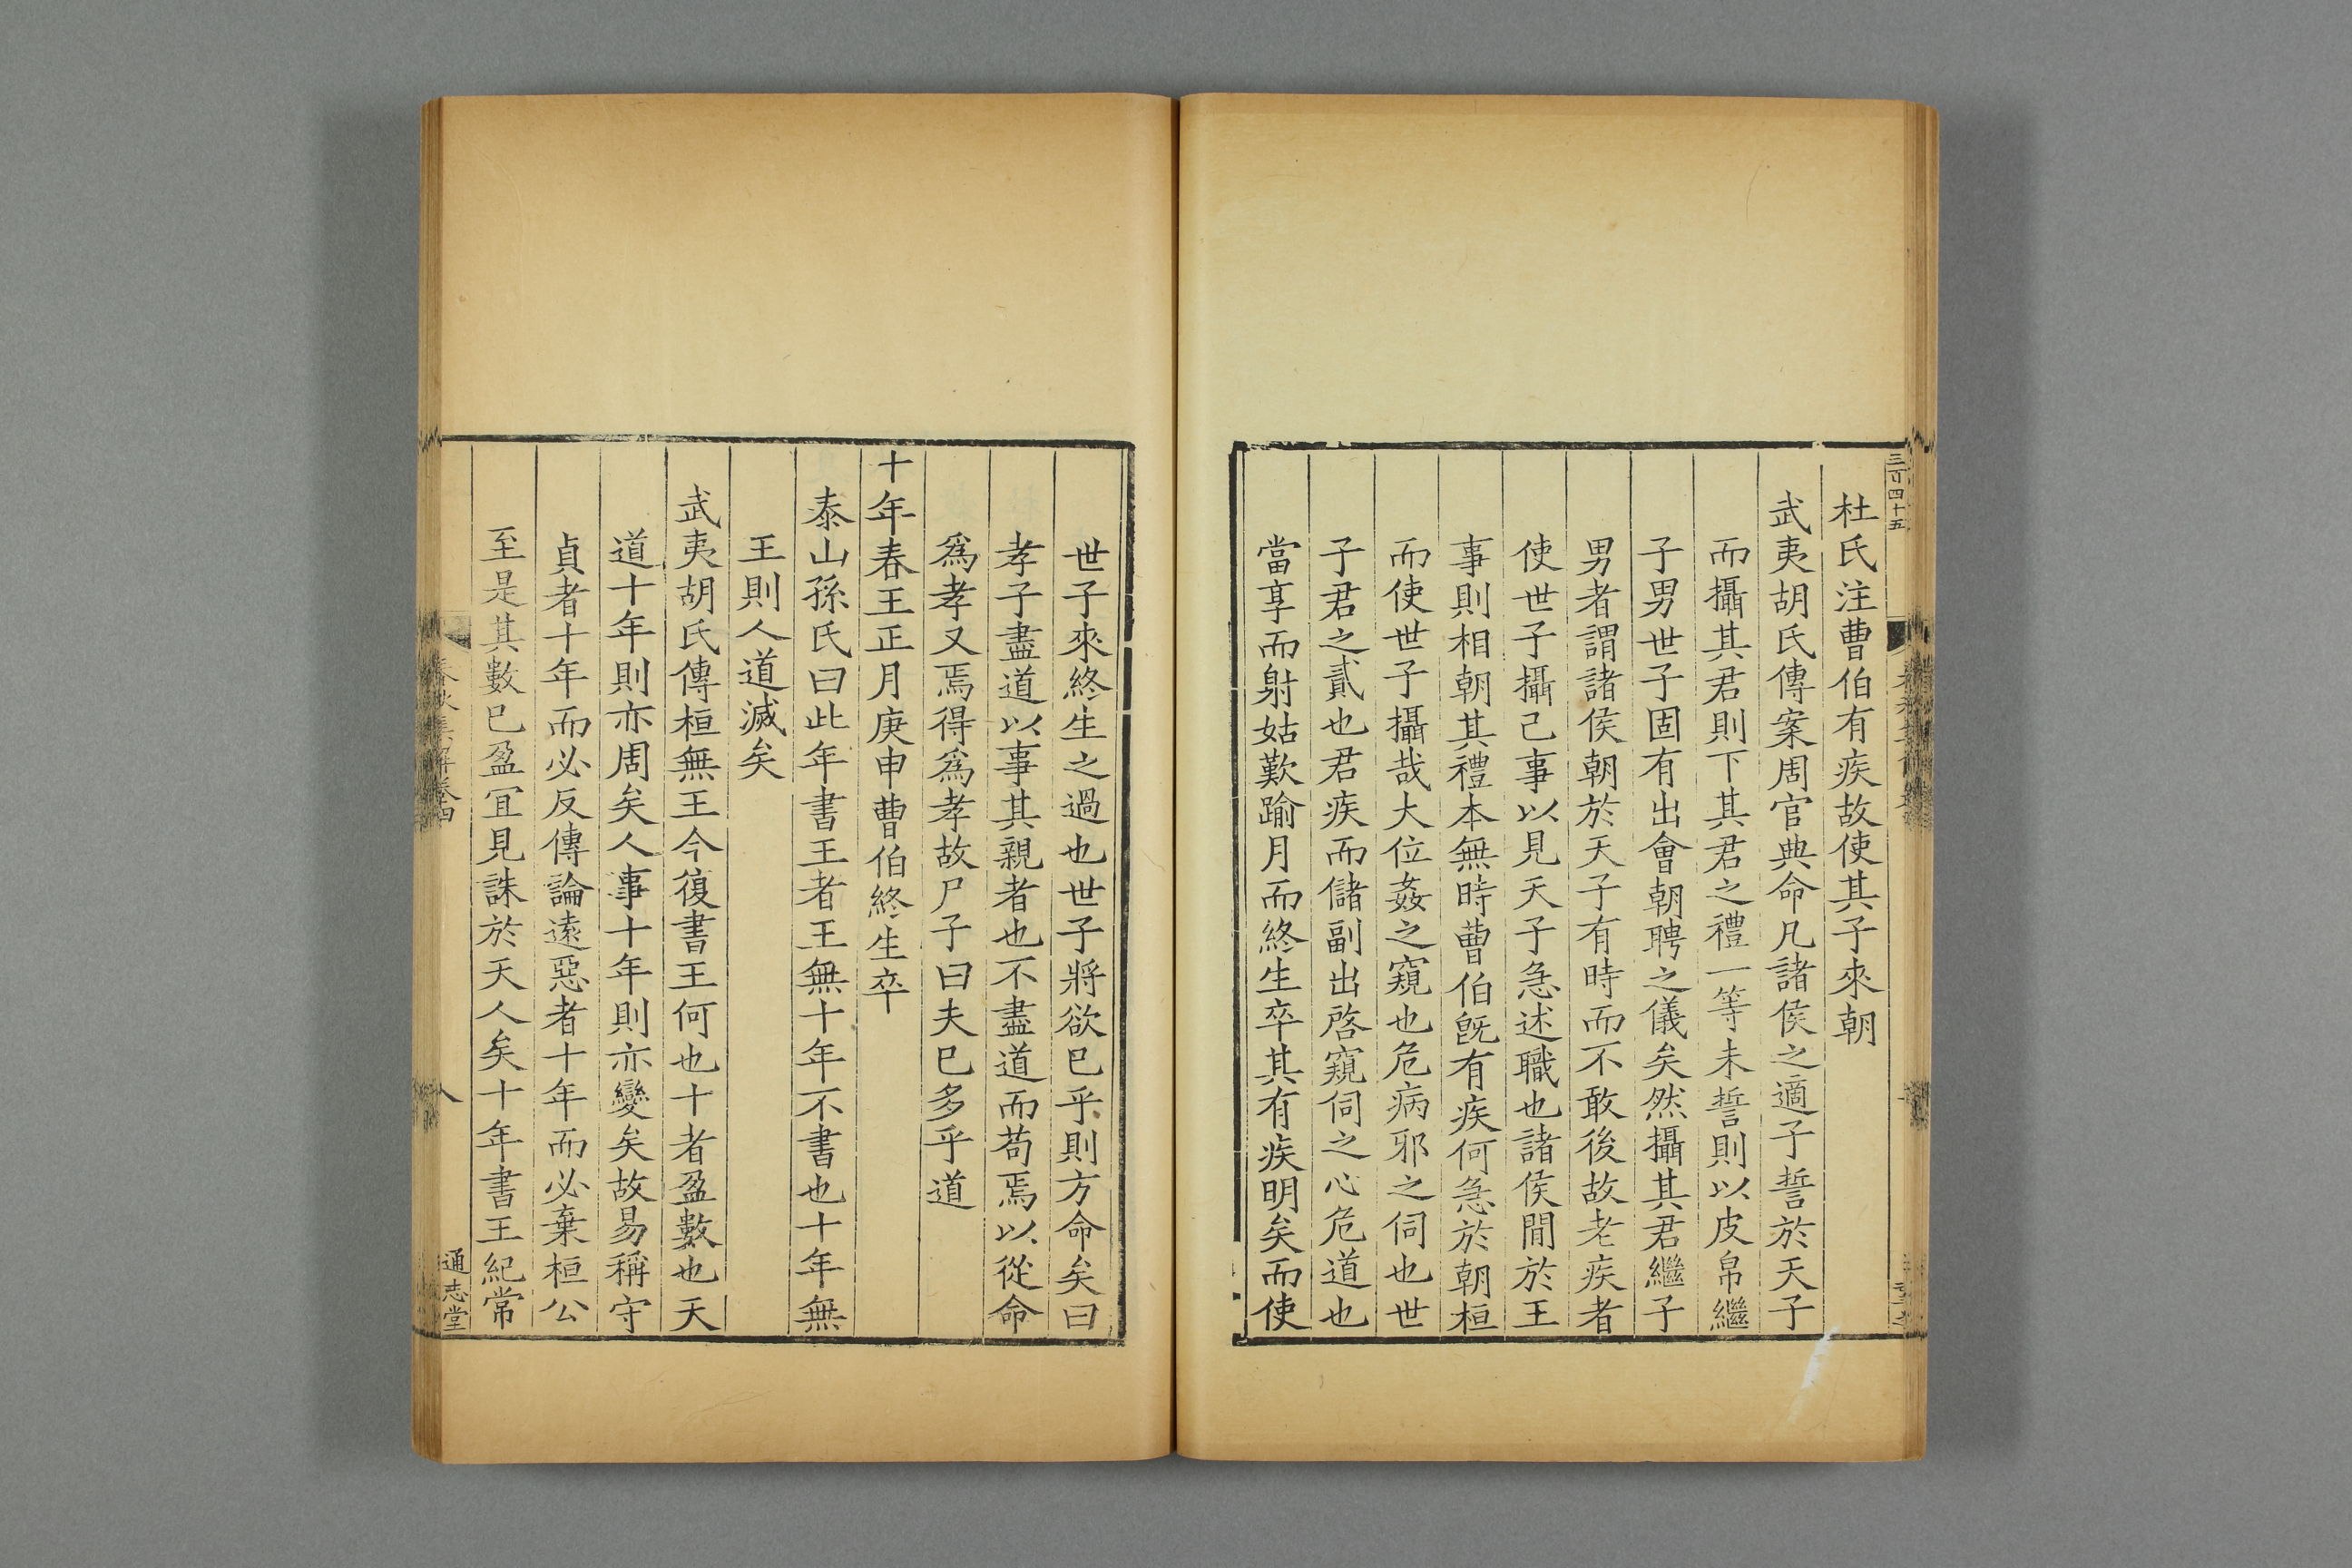 三百四十五
杜氏注曹伯有疾故使其子來朝
武夷胡氏傳案周官典命凡諸侯之適子誓於天子
而攝其君則下其君之禮一等未誓則以皮帛繼
子男世子固有出會朝聘之儀矣然攝其君繼子
男者謂諸侯朝於天子有時而不敢後故老疾者
使世子攝己事以見天子急述職也諸侯閒於王
事則相朝其禮本無時曹伯旣有疾何急於朝桓
而使世子攝哉大位姦之窺也危病邪之伺也世
子君之貳也君疾而儲副出啓窺伺之心危道也
當享而射姑歎踰月而終生卒其有疾明矣而使
世子來終生之過也世子將欲已乎則方命矣曰
孝子盡道以事其親者也不盡道而苟焉以從命
爲孝又焉得爲孝故尸子曰夫已多乎道
十年春王正月庚申曹伯終生卒
泰山孫氏曰此年書王者王無十年不書也十年無
王則人道滅矣
武夷胡氏傳桓無王今復書王何也十者盈數也天
道十年則亦周矣人事十年則亦變矣故易稱守
貞者十年而必反傳論遠惡者十年而必棄桓公
至是其數已盈宜見誅於天人矣十年書王紀常
春秋集解卷四
八
通志堂